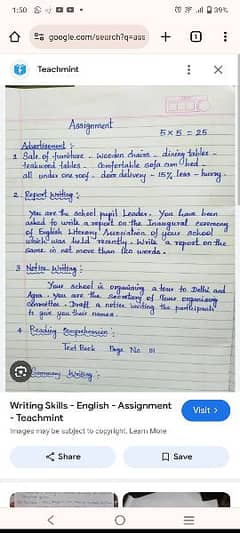 1:50
39%
google.com/search?q=ass
1
Teachmint
Assignment
5 x 5 = 25
Advertisement :
1 Sale of furniture - wooden chairs - dining tables -
teakwood tables - Comfortable sofa cum bed -
all under one roof - door delivery - 15% less - hurry.
2. Report Writing :
You are the school pupil Leader. You have been
asked to write a report on the Inaugural ceremony
of English Literary Association of your school
which was held recently. Write a report on the
same in not more than 120 words.
3 Notice Writing :
Your school is organising a tour to Delhi and
Agra. You are the secretary of Tour organising
committee. Draft a notice inviting the participants
to give their names.
4 Reading Comprehension :
Text Book Page No 111
Summary Writing :
Writing Skills - English - Assignment
- Teachmint
Visit >
Images may be subject to copyright. Learn More
Share
Save